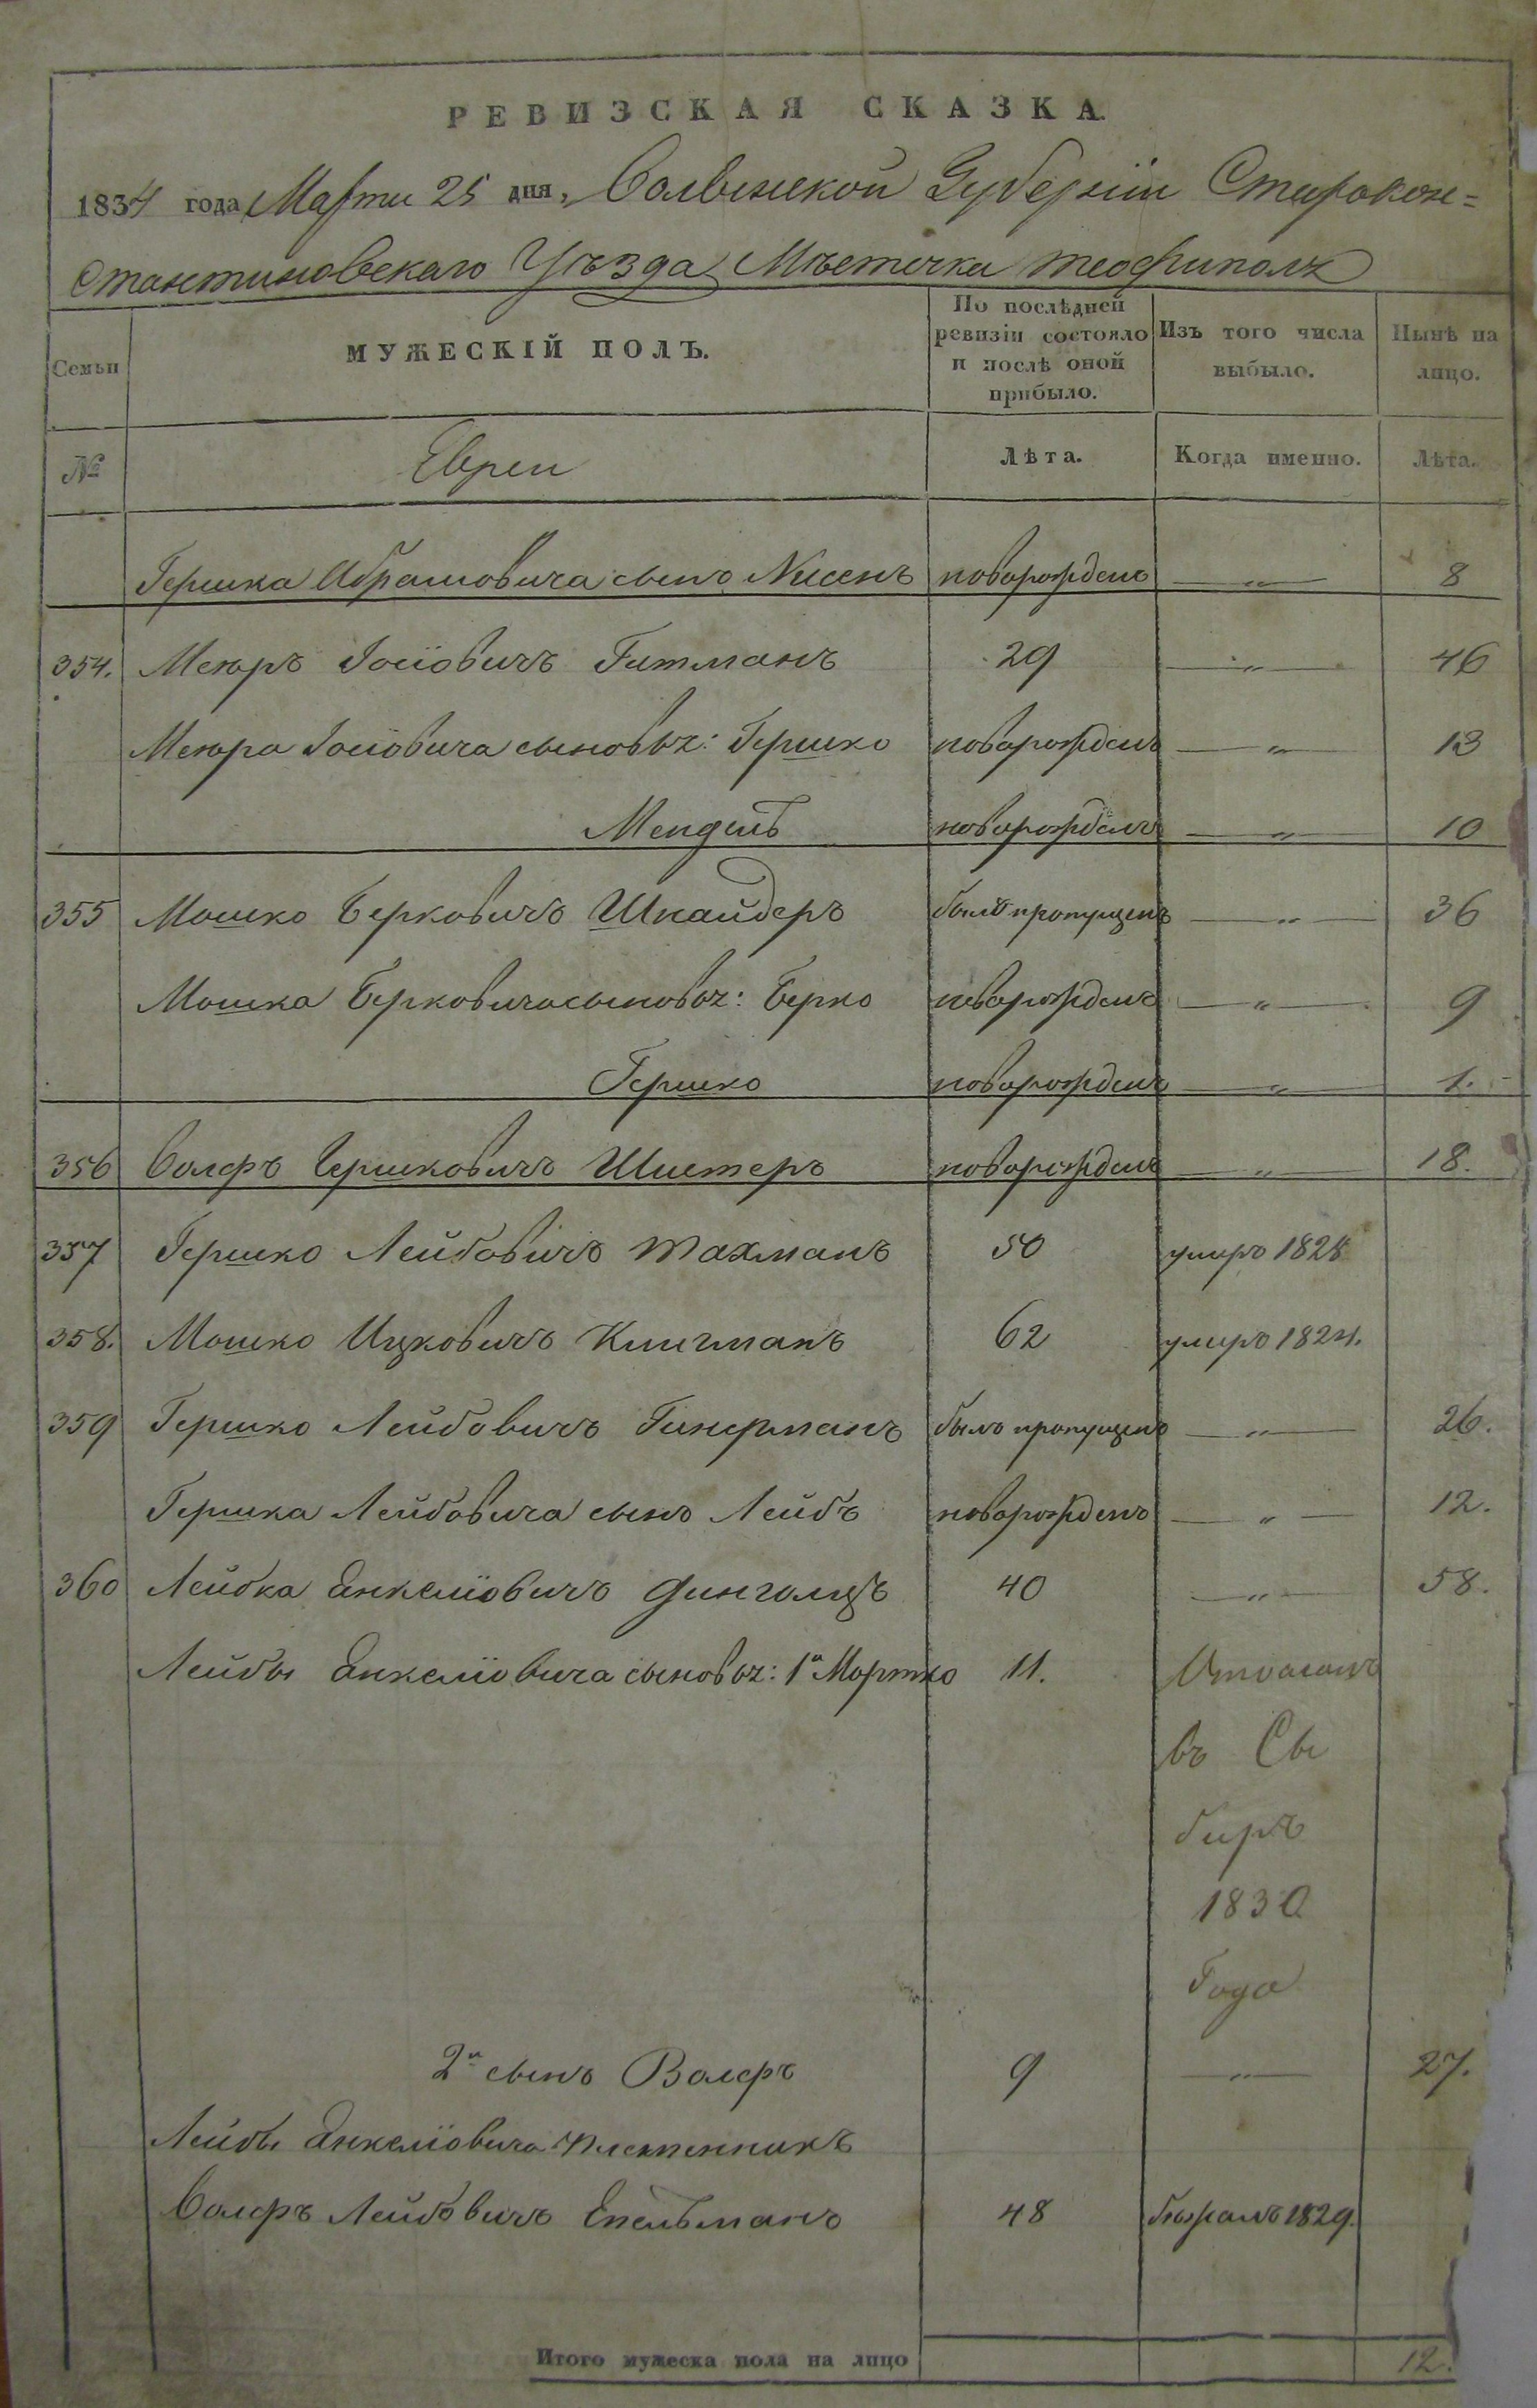 РЕВИЗСКАЯ СКАЗКА.
1834 года Марта 25 дня, Волынской Губерніи Старокон=
стантиновскаго Уѣзда Мѣстечка Теофиполя
Семьи
МУЖЕСКІЙ ПОЛЪ.
По послѣдней ревизіи состояло и послѣ оной прибыло.
Изъ того числа выбыло.
Нынѣ на лицо.
№ Евреи Лѣта. Когда именно. Лѣта.
Гершка Абрамовича сынъ Нисенъ новорожденъ —〃— 8
354. Меюръ Іосіовичъ Гитманъ 29 —〃— 46
Меюра Іосіовича сыновья: Гершко новорожденъ —〃— 13
Мендель новорожденъ —〃— 10
355 Мошко Берковичъ Шнайдеръ былъ пропущенъ —〃— 36
Мошка Берковича сыновья: Берко новорожденъ —〃— 9
Гершко новорожденъ —〃— 1.
356 Волфъ Гершковичъ Шистеръ новорожденъ —〃— 18.
357 Гершко Лейбовичъ Махманъ 50 умеръ 1828
358. Мошко Ицковичъ Клигманъ 62 умеръ 1824.
359 Гершко Лейбовичъ былъ пропущенъ —〃— 26.
Гершка Лейбовича сынъ Лейбъ новорожденъ —〃— 12.
360 Лейбка Енкеліовичъ Фингольцъ 40 —〃— 58.
Лейбы Енкеліовича сыновья: 1й Мортко 11.
въ Си
биръ
1830
Года
2й сынъ Волфъ 9 —〃— 27.
Лейбы Енкеліовича племенникъ
Волфъ Лейбовичъ Епельманъ 48 бѣжалъ 1829.
Итого мужеска пола на лицо 12.